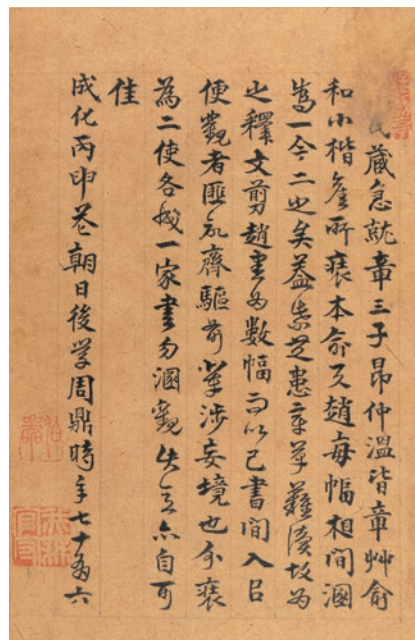 氏藏急就章三子昂仲溫皆章艸俞
和小楷詹所裒本俞又趙每幅相間溷
為一今二之矣蓋紫芝患章草難讀故為
之釋文剪趙書為數幅而以己書間入㠯
便觀者匪齊驅前輩涉妄境也分裒
為二使各一家書勿溷觀失真亦自可
佳
成化丙申朝日後學周鼎時年七十六